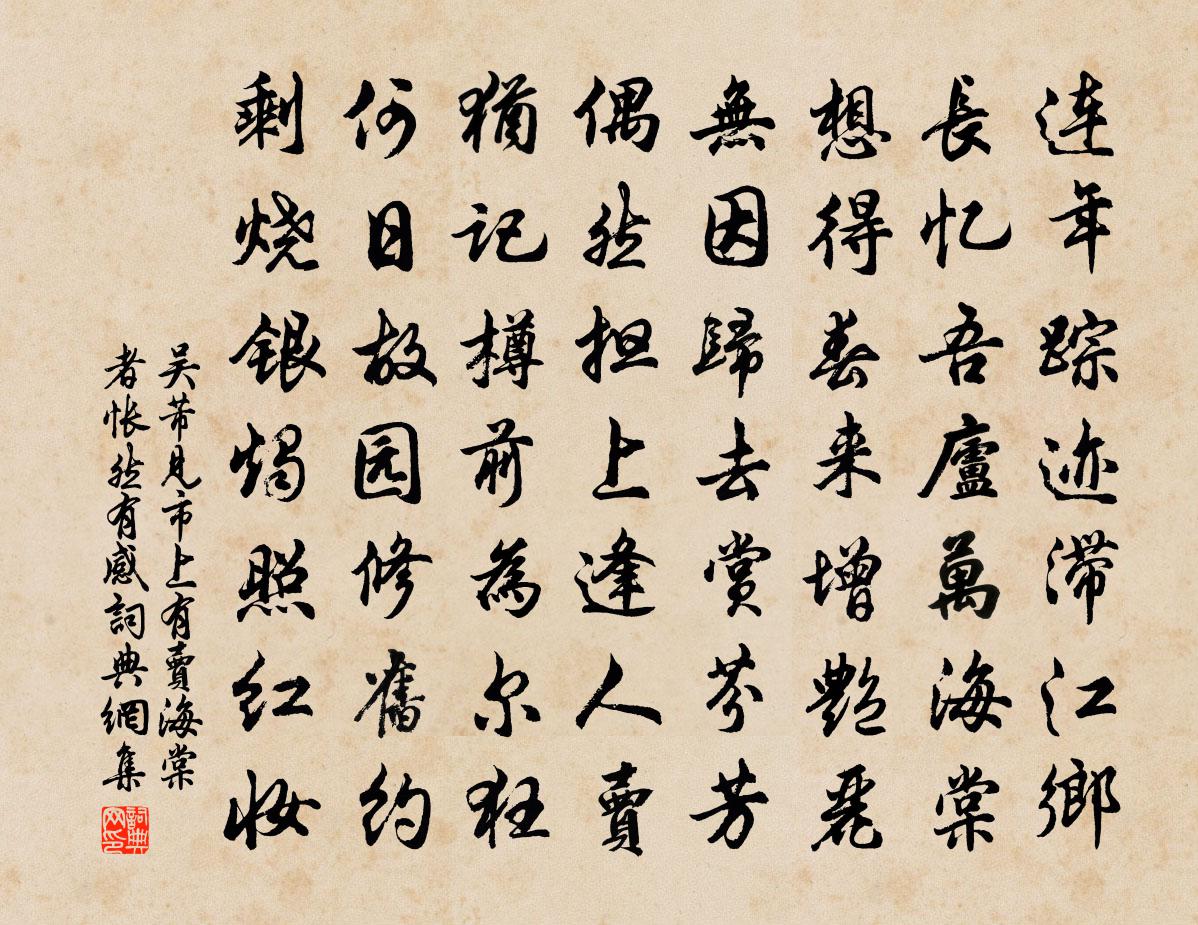 连年踪迹滞江鄉
長忆吾廬萬海棠
想得春来增艷麗
無因歸去赏芬芳
偶然担上逢人賣
猶记樽前為尔狂
何日故园修舊约
剩烧銀燭照红妆
吴芾見市上有賣海棠
者怅然有感詞典網集
詞典网印